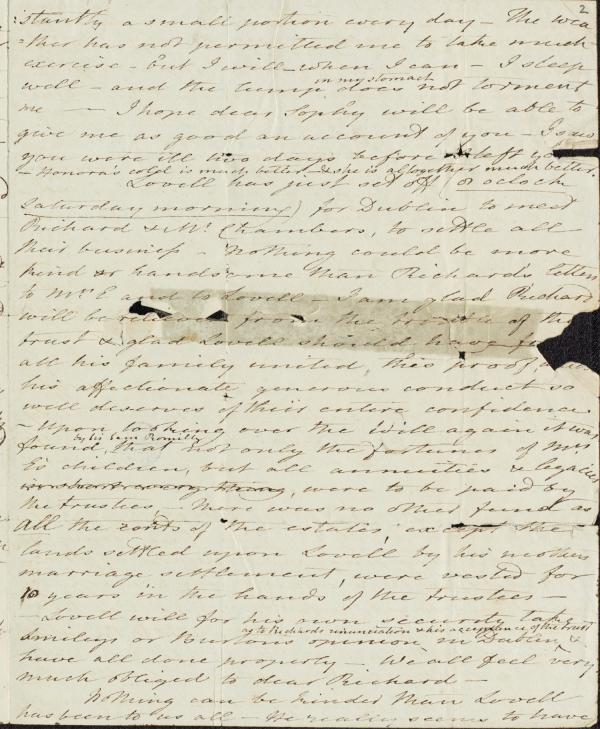 2
stantly a small portion every day – The wea
=ther has not permitted me to take much
exercise – but I will when I can – I sleep
in my stomach
well – and the lump does not torment
me – I hope dear Sophy will be able to
give me as good an account of you – I saw
you were ill two days before left
– Honora's cold is much better – & she is altogether much better.
Lovell has just set off (8 oclock
Saturday morning) for Dublin to meet
Richard & Mr. Chambers, to settle all
their business – Nothing could be more
kind & handsome than Richards letters
to Mrs E and to Lovell – I am glad Richard
will be relieved from the trouble of the
trust & glad Lovell should have
all his family united, this proof
his affectionate generous conduct so
well deserves of their entire confidence
– Upon looking over the will again it was
by Sir Saml Romilly
found, that not only the fortunes of Mrs
Es children, but all annuities & legacies
in short every thing, were to be paid by
the trustees – there was no other fund as
all the rents of the estates, except the
lands settled upon Lovell by his mothers
marriage settlement, were vested for
10 years in the hands of the trustees –
Lovell will for his own security take
as to Richards renunciation & his acceptance of the trust
Smileys or Burtons opinion in Dublin &
have all done properly – We all feel very
much obliged to dear Richard –
Nothing can be kinder than Lovell
has been to us all – He really seems to have